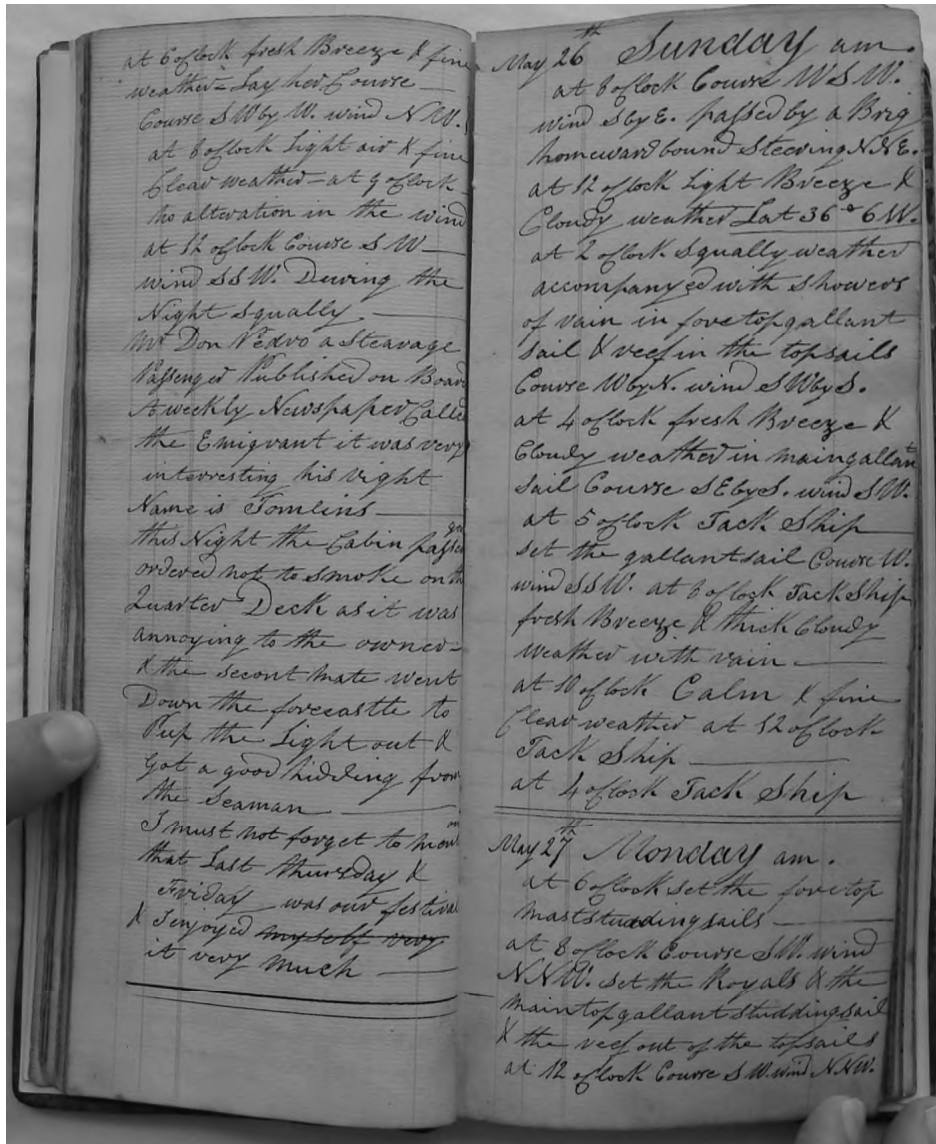 at 6 oClock fresh Breeze & fine
weather - Lay her Course
Course S W by W. wind N W.
at 8 oClock Light air & fine
Clear weather - at 9 oClock
no alteration in the wind
at 12 oClock Course S W
wind S S W. During the
Night Squally
Mr Don Pedro a Stearage
Passenger Published on Board
A weekly Newspaper Called
the Emigrant it was very
interresting his right
Name is Tomlins
this Night the Cabin passen gr
ordered not to Smoke on the
Quarter Deck as it was
annoying to the owner -
& the Second mate went
Down the forecastle to
Pup the Light out &
Got a good hidding from
the Seaman
I must not forget to men on
that Last thursday &
Friday was our festival
& I enjoyed myself very
it very much
May 26th Sunday am.
at 8 oClock Course W S W.
wind S by E. passed by a Brig
homeward bound Steering N N E.
at 12 oClock Light Breeze &
Cloudy weather Lat 36° 6 W.
at 2 oClock Squally weather
accompanyed with Showers
of rain in foretopgallant
Sail & reef in the topsails
Course W by N. wind S W by S.
at 4 oClock fresh Breeze &
Cloudy weather in maingallant
Sail Course S E by S. wind S W.
at 5 oClock Tack Ship
Set the gallantsail Course W.
wind S S W. at 8 oClock Tack Ship
fresh Breeze & thick Cloudy
weather with rain
at 10 oClock Calm & fine
Clear weather at 12 oClock
Tack Ship
at 4 oClock Tack Ship
May 27th Monday am.
at 6 oClock Set the foretop
mast studdingsails
at 8 oClock Course S W. wind
N N W. Set the Royals & the
maintopgallant Studdingsail
& the reef out of the topsails
at 12 oClock Course S W. wind N N W.